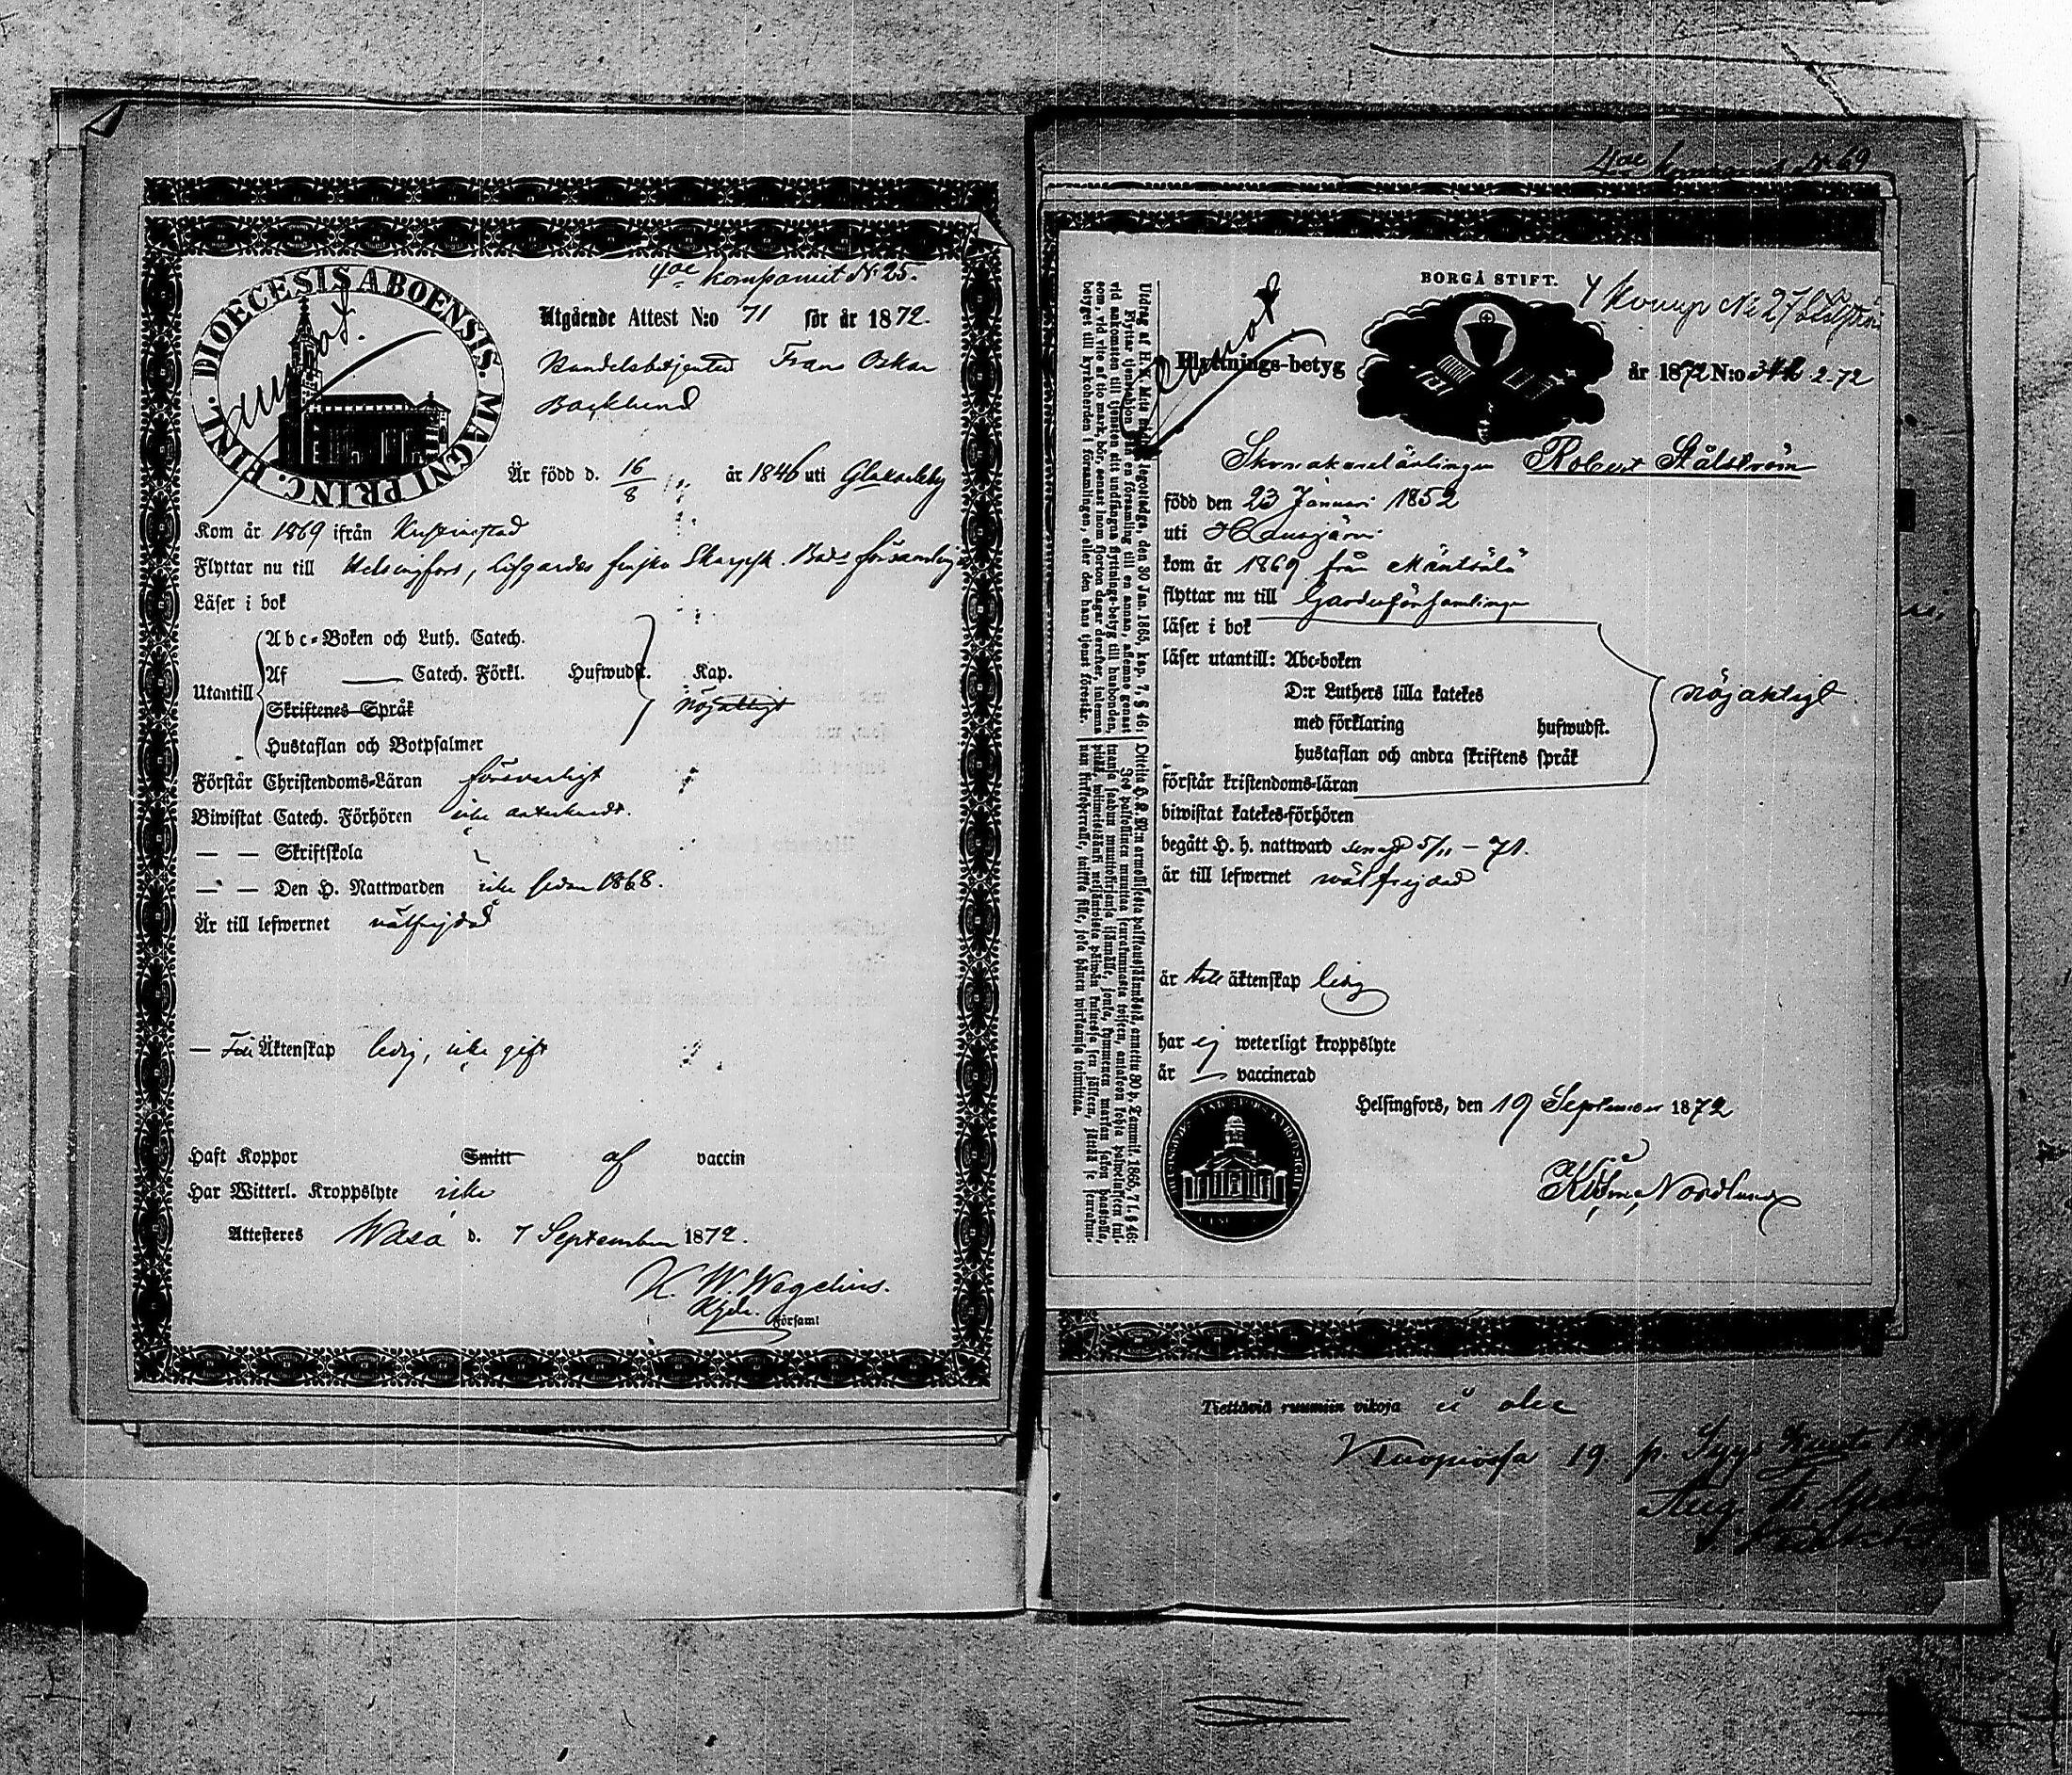 DIOECESIS ABOENSIS. MAGNI PRINC. FINL.
4de Kompaniet N:25.
Utgående Attest N:o 71 för år 1872.
Handelsbetjenten Frans Oskar
Backlund
Är född d. 16/8 år 1846 uti Glakarleby
Kom år 1869 ifrån Kristinestad
Flyttar nu till Helsingfors, Lifgardes finska Skarpsk. Bat:s församling
Läser i bok
Utantill
Abc-Boken och Luth. Catech.
Af —— Catech. Förkl. Hufwudst. Kap.
Skriftenes Språk nöjaktigt
Hustaflan och Botpsalmer
Förstår Christendoms-Läran försvarligt
Biwistat Catech. Förhören icke antecknadt.
— — Skriftskola
— — Den H. Nattwarden icke sedan 1868.
Är till lefwernet välfrejdad
— Till Äktenskap ledig, icke gift
Haft Koppor Smitt af vaccin
Har Witterl. Kroppslyte icke
Attesteres Wasa d. 7 September 1872.
K. W. Wegelius.
Församl
4de Kompaniet N:69
BORGÅ STIFT.
4 Komp N:27
Flyttnings-betyg år 1872 N:o 2-72
Skomakarelärlingen Robert Stålström
född den 23 Januari 1852
uti Hausjärvi
kom år 1869 från Mäntsälä
flyttar nu till Gardesförsamlingen
läser i bok
läser utantill: Abc-boken
D:r Luthers lilla katekes
med förklaring hufwudst.
nöjaktigt
hustaflan och andra skriftens språk
förstår kristendoms-läran
biwistat katekes-förhören
begått H. h. nattward senast 5/11 - 71.
är till lefwernet wälfrejdad
är till äktenskap ledig
har ej weterligt kroppslyte
är — vaccinerad
Helsingfors, den 19 September 1872
Nordlund
Utdrag af H. K. Maj:ts legostadga, den 30 Jan. 1865, kap. 7, § 46:
Flyttar tjenstehjon från en församling till en annan, aflemne genast
vid ankomsten till tjensten sitt undfångna flyttnings-betyg till husbonden,
som, vid vite af tio mark, bör, senast inom fjorton dagar derefter, inlemna
betyget till kyrkoherden i församlingen, eller den hans tjenst förestår.
Tiettäviä ruumiin vikoja ei ole
Kuopiossa 19 p. Syys kuuta